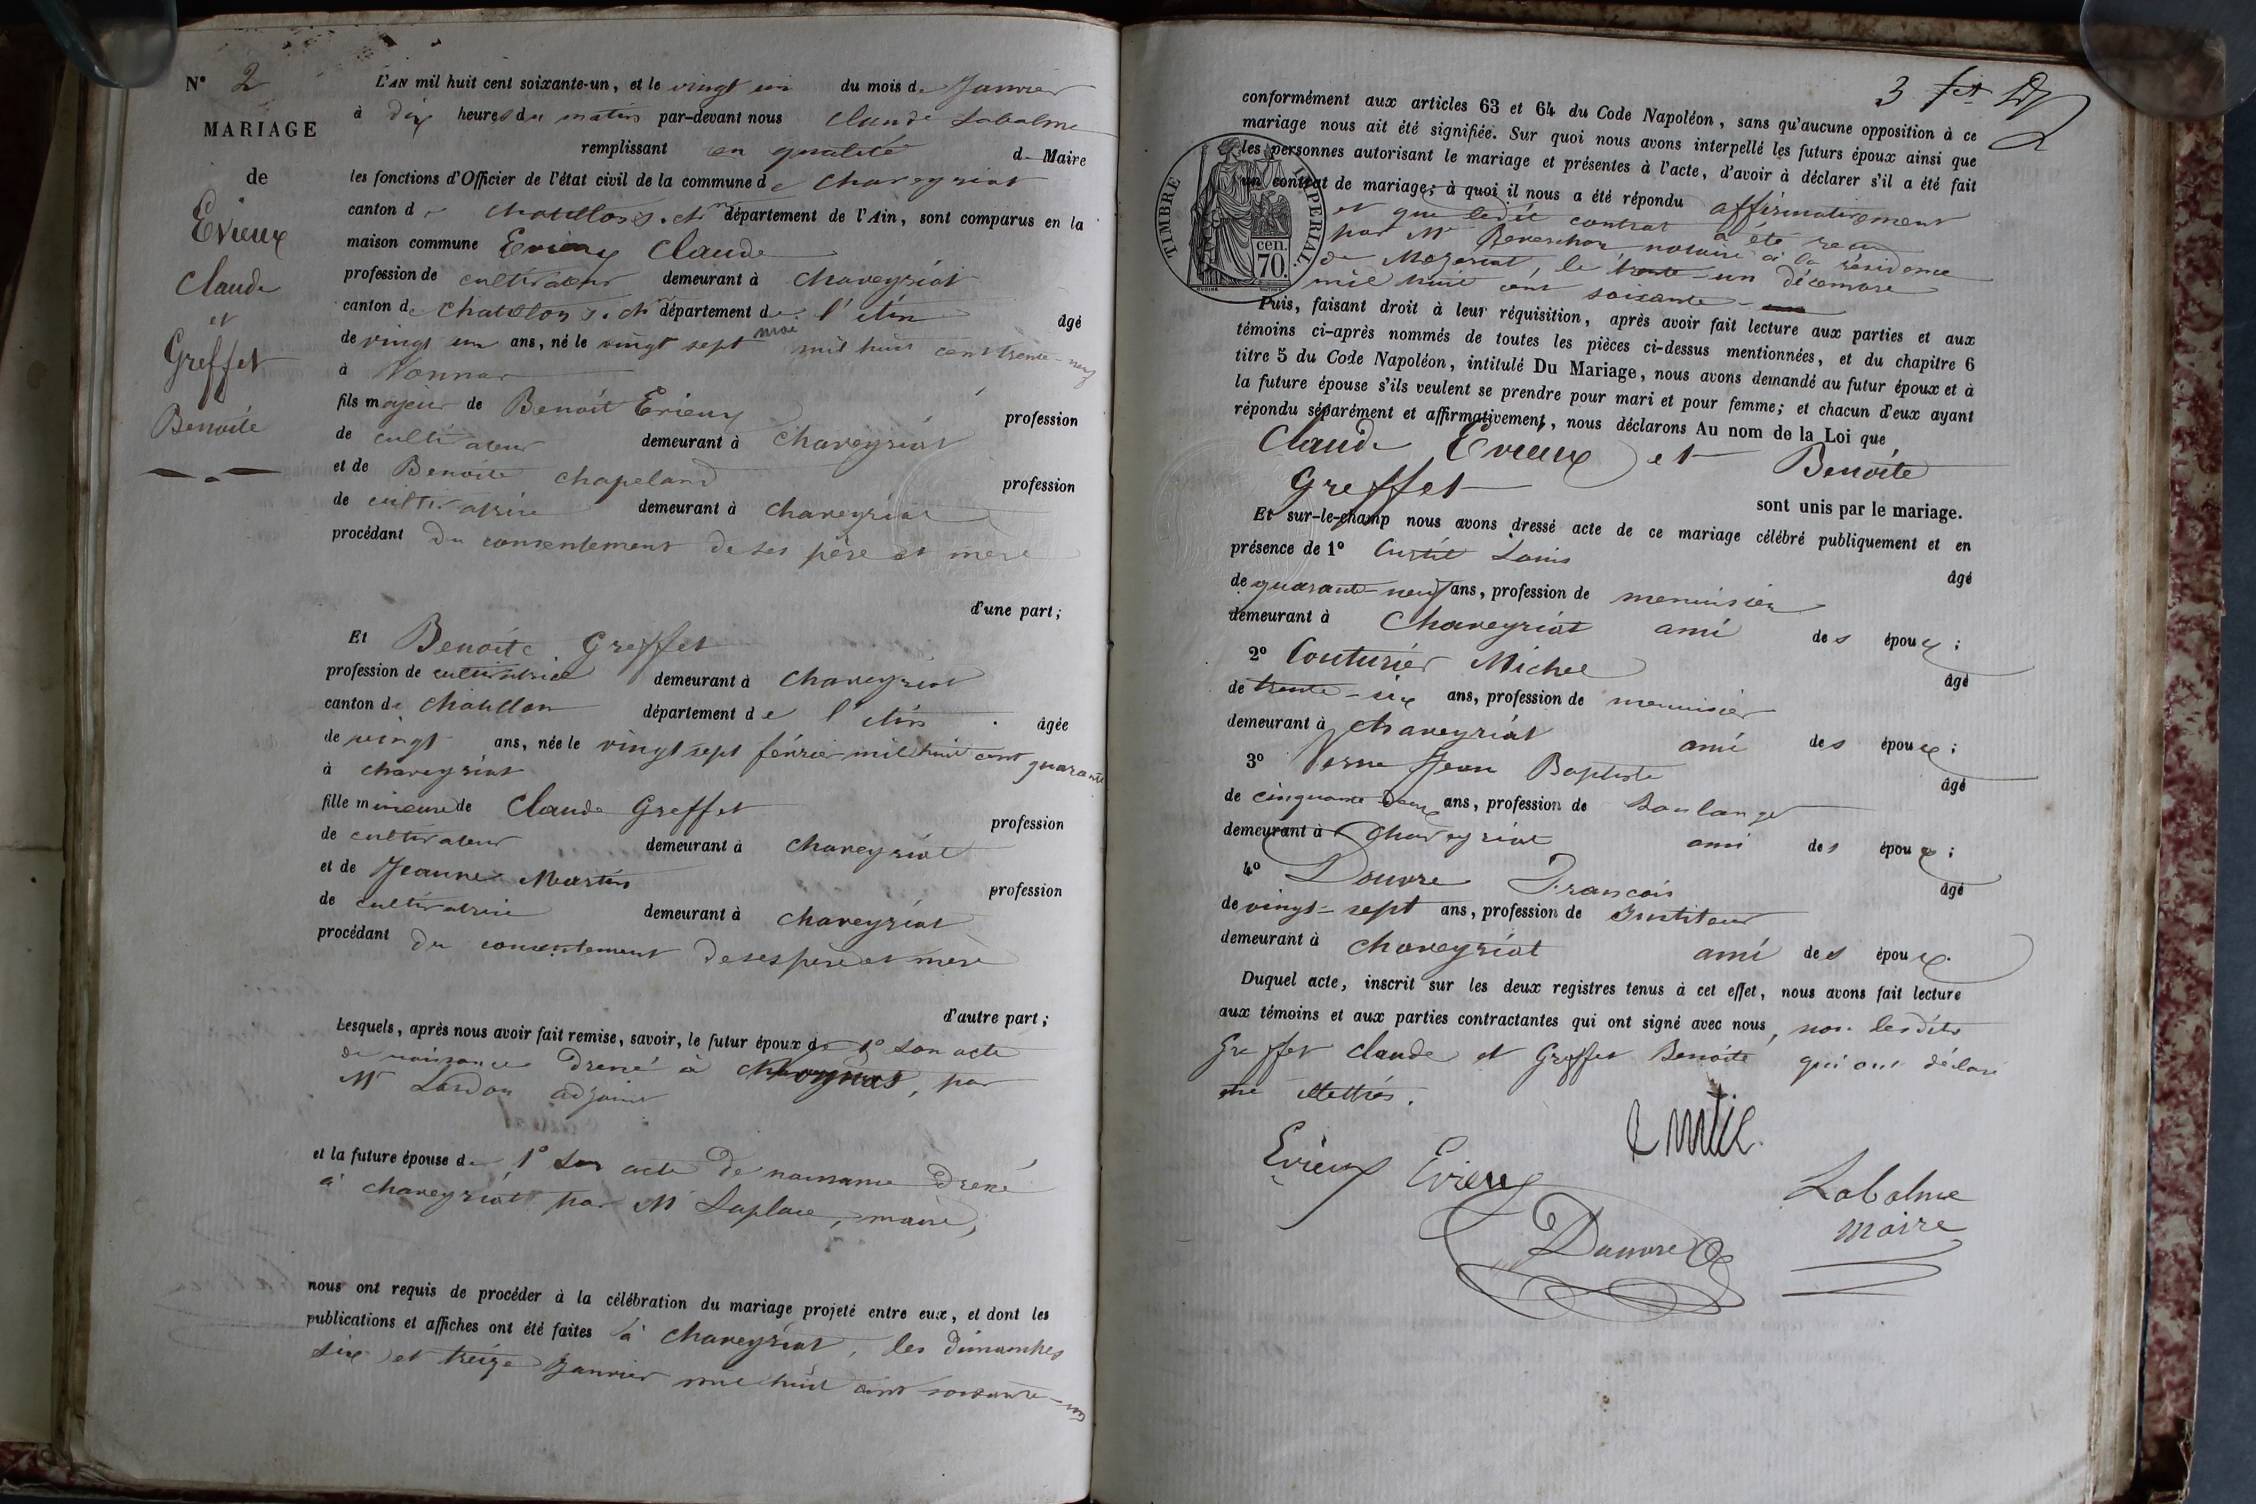 N° 2
MARIAGE
de
Evieux
Claude
et
Greffet
Benoite
L'AN mil huit cent soixante-un, et le vingt un du mois de Janvier
à dix heures du matin par-devant nous Claude Labalme
remplissant en qualité de Maire
les fonctions d'Officier de l'état civil de la commune de Chaveyriat
canton de Chatillon s. ch département de l'Ain, sont comparus en la
maison commune Evieux Claude
profession de cultivateur demeurant à Chaveyriat
canton de Chatillon s. ch département de l'Ain âgé
de vingt un ans, né le vingt sept mai mil huit cent trente-neuf
à Vonnas
fils majeur de Benoît Evieux profession
de cultivateur demeurant à Chaveyriat
et de Benoite Chapeland profession
de cultivatrice demeurant à Chaveyriat
procédant du consentement de ses père et mère
d'une part;
Et Benoite Greffet
profession de cultivatrice demeurant à Chaveyriat
canton de Chatillon département de l'Ain âgée
de vingt ans, née le vingt sept février mil huit cent quarante
à Chaveyriat
fille mineure de Claude Greffet profession
de cultivateur demeurant à Chaveyriat
et de Jeanne Martin profession
de cultivatrice demeurant à Chaveyriat
procédant du consentement de ses père et mère
d'autre part;
Lesquels, après nous avoir fait remise, savoir, le futur époux de 1° son acte
de naissance dressé à , par
Mr Lardon adjoint
et la future épouse de 1° son acte de naissance dressé
à Chaveyriat par Mr Laplace, maire,
nous ont requis de procéder à la célébration du mariage projeté entre eux, et dont les
publications et affiches ont été faites à Chaveyriat, les dimanches
six et treize Janvier mil huit cent soixante-un
3
conformément aux articles 63 et 64 du Code Napoléon, sans qu'aucune opposition à ce
mariage nous ait été signifiée. Sur quoi nous avons interpellé les futurs époux ainsi que
les personnes autorisant le mariage et présentes à l'acte, d'avoir à déclarer s'il a été fait
un contrat de mariage; à quoi il nous a été répondu affirmativement
et que ledit contrat a été reçu
par Mr notaire à la résidence
de Mezeriat, le trente-un décembre
mil huit cent soixante
TIMBRE IMPERIAL.
cen.
70.
Puis, faisant droit à leur réquisition, après avoir fait lecture aux parties et aux
témoins ci-après nommés de toutes les pièces ci-dessus mentionnées, et du chapitre 6
titre 5 du Code Napoléon, intitulé Du Mariage, nous avons demandé au futur époux et à
la future épouse s'ils veulent se prendre pour mari et pour femme; et chacun d'eux ayant
répondu séparément et affirmativement, nous déclarons Au nom de la Loi que
Claude Evieux et Benoite
Greffet sont unis par le mariage.
Et sur-le-champ nous avons dressé acte de ce mariage célébré publiquement et en
présence de 1° Curtil Louis âgé
de quarante-neuf ans, profession de menuisier
demeurant à Chaveyriat ami des époux;
2° Couturier Michel âgé
de trente-six ans, profession de menuisier
demeurant à Chaveyriat ami des époux;
3° Verne Jean Baptiste âgé
de cinquante deux ans, profession de Boulanger
demeurant à Chaveyriat ami des époux;
4° Douvre Francois âgé
de vingt-sept ans, profession de Instituteur
demeurant à Chaveyriat ami des époux.
Duquel acte, inscrit sur les deux registres tenus à cet effet, nous avons fait lecture
aux témoins et aux parties contractantes qui ont signé avec nous, non lesdits
Greffet Claude et Greffet Benoite qui ont déclaré
être illettrés.
Curtil
Evieux Evieux
Labalme
maire
Douvre